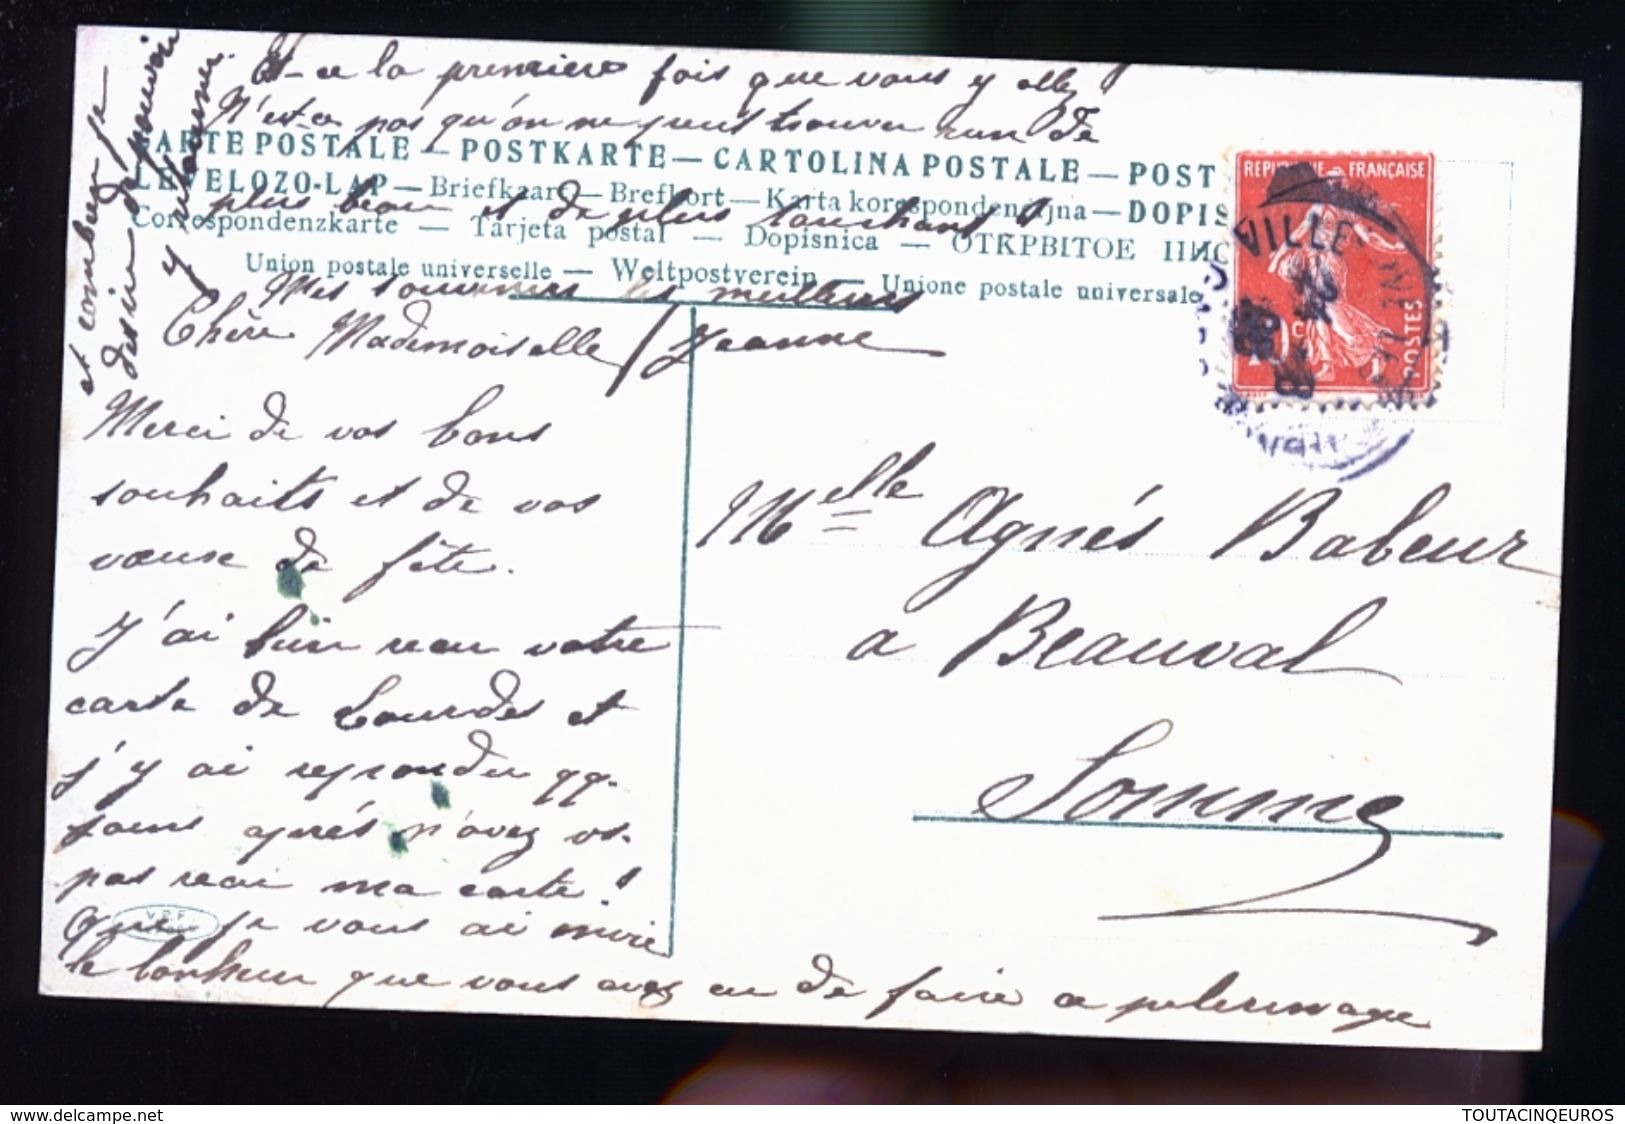 Chère Mademoiselle
Merci de vos bons
souhaits et de vos
vœux de fête.
J'ai bien reçu votre
carte de Lourdes et
j'y ai répondu qq.
jours après n'avez vs.
pas reçu ma carte!
Que je vous ai envié
le bonheur que vous avez eu de faire ce pèlerinage
et combien je
désire de pouvoir
y retourner.
Est-ce la première fois que vous y allez
N'est-ce pas qu'on ne peut trouver rien de
plus beau et de plus touchant?
Mes souvenirs les meilleurs
Jeanne
CARTE POSTALE — POSTKARTE — CARTOLINA POSTALE — POST
LEVELEZO-LAP — Briefkaart — Brefkort — Karta korespondencyjna — DOPIS
Correspondenzkarte — Tarjeta postal — Dopisnica — ОТКРЫТОЕ ПИС
Union postale universelle — Weltpostverein — Unione postale universale
REPUBLIQUE FRANÇAISE
10 c
POSTES
VILLE
Melle Agnés Babeur
a Beauval
Somme
www.delcampe.net
TOUTACINQEUROS